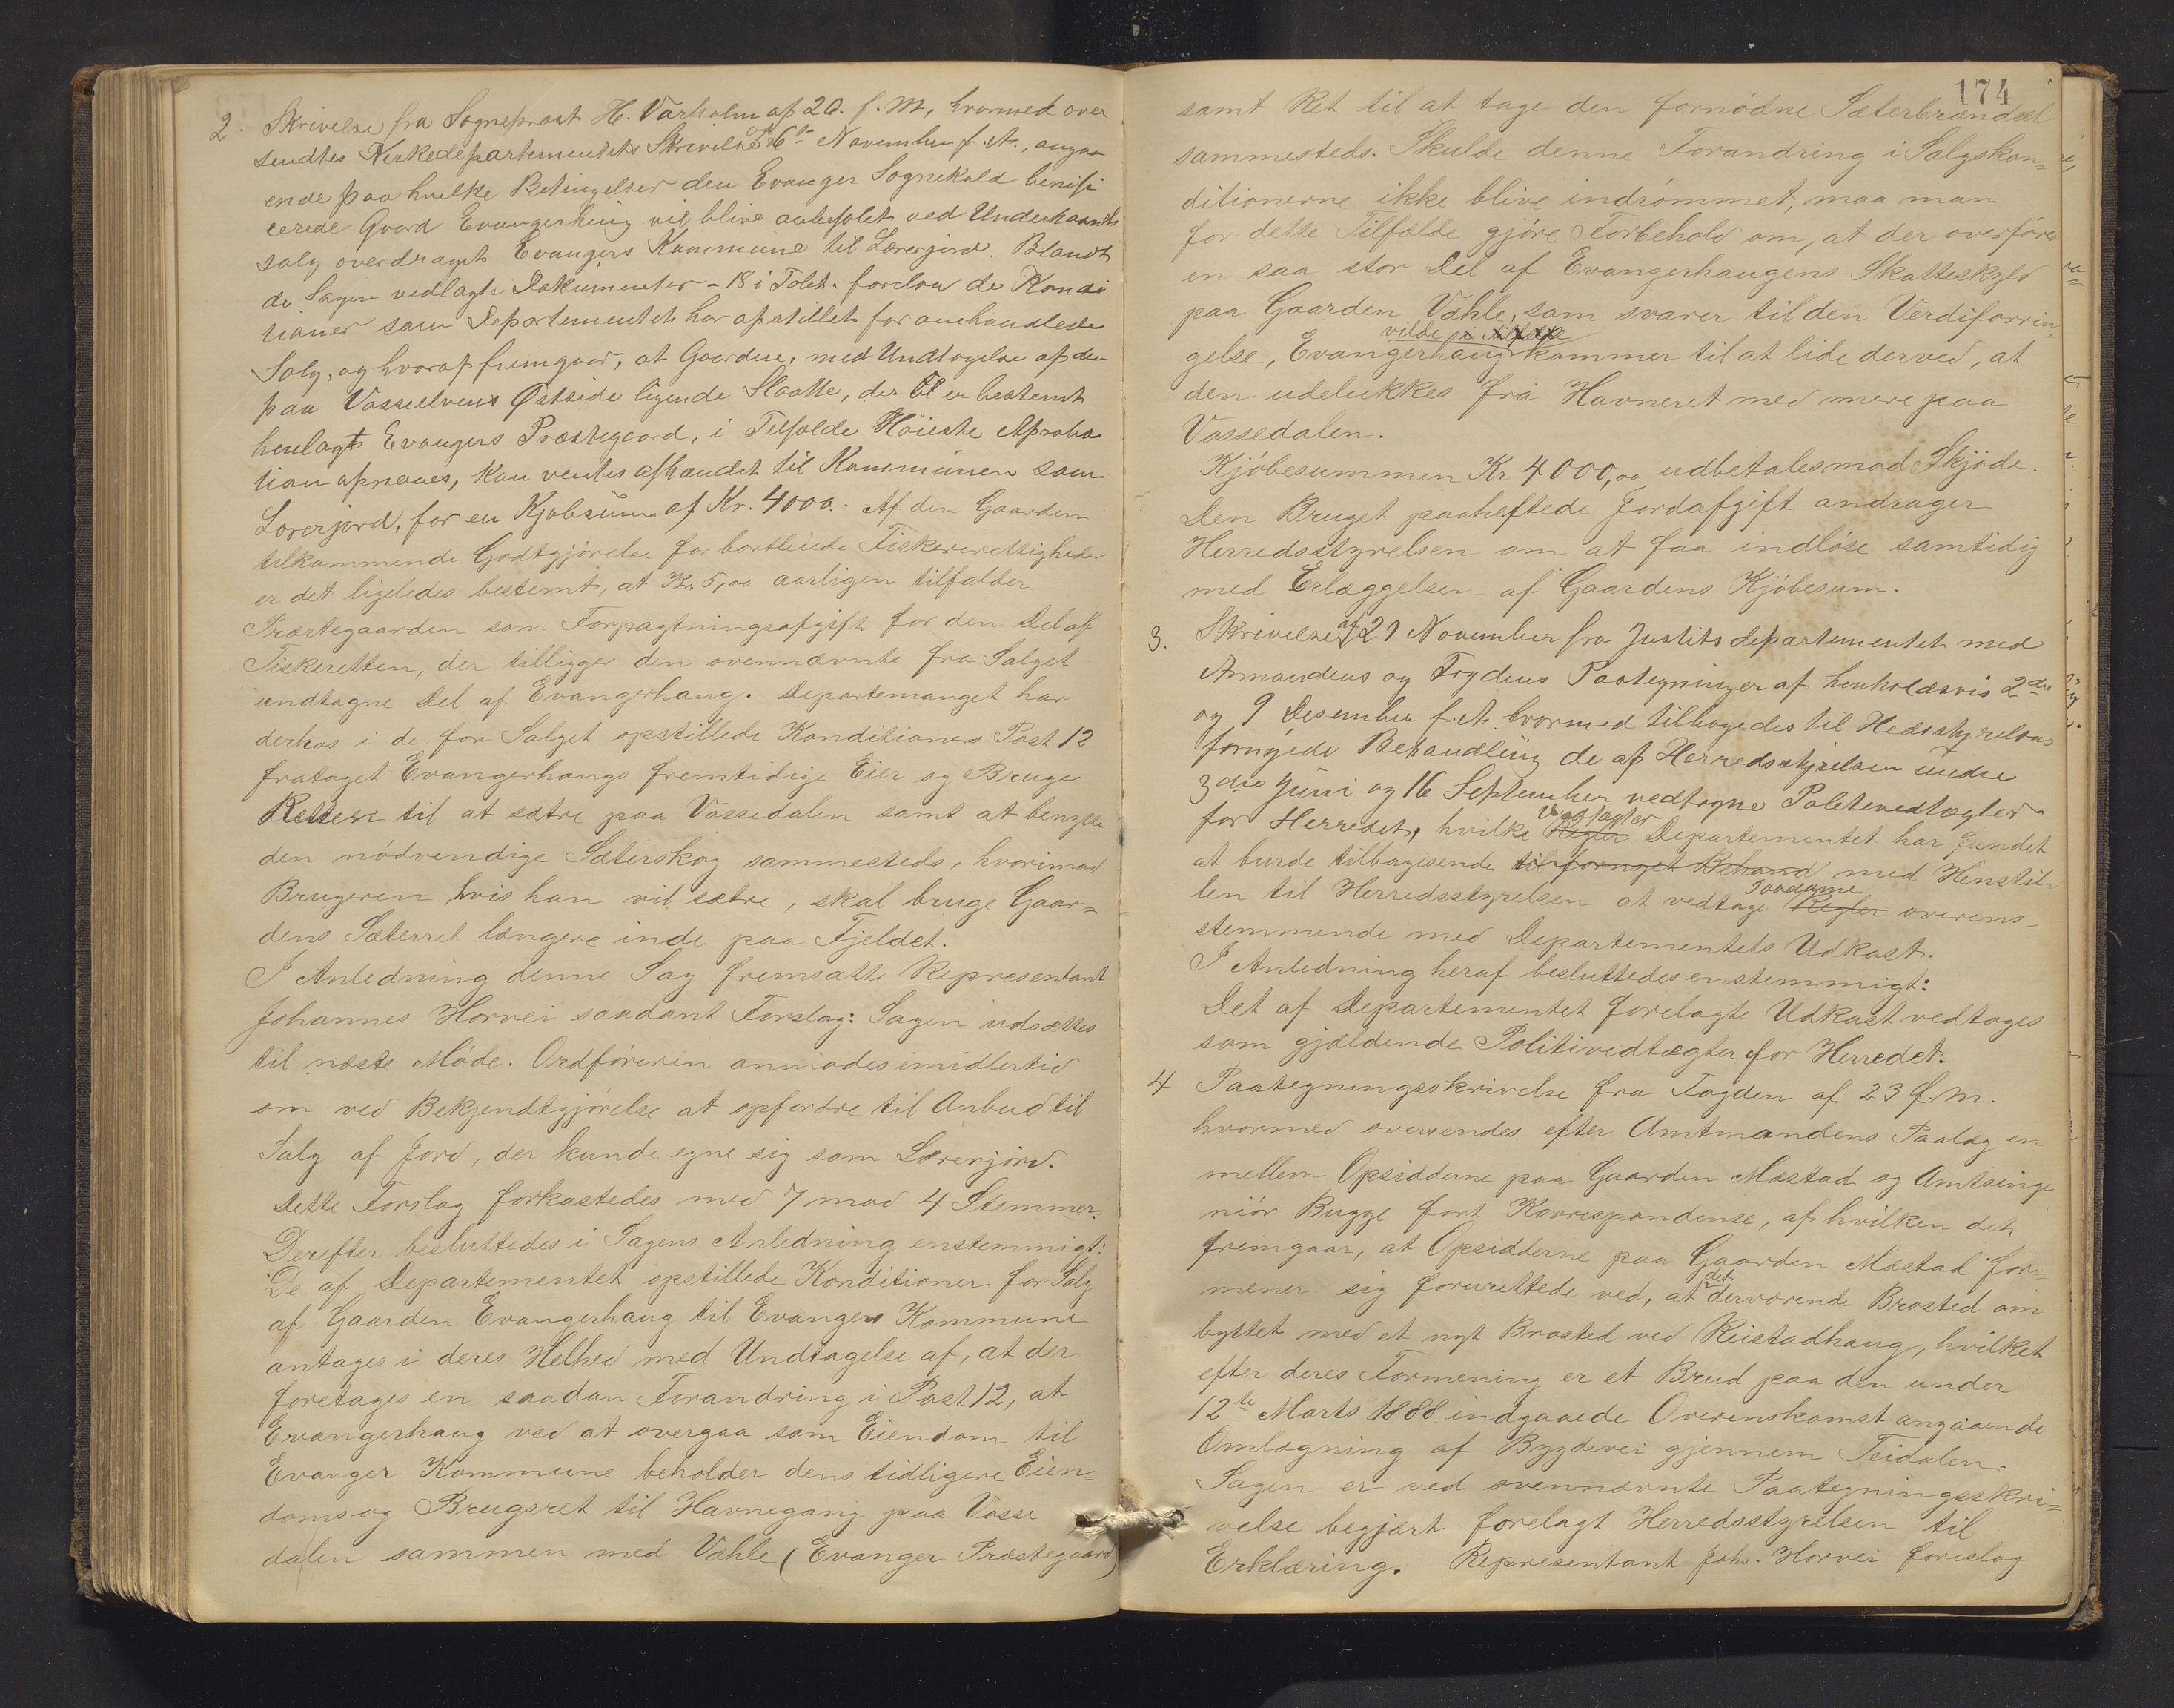 2. Skrivelse fra Sogneprest H. Varholm af 20. f. M., hvormed over
sendtes Kirkedepartementets Skrivelse af 6te November f. A., angaa
ende paa hvilke Betingelser den Evanger Sognekald benifi
cerede Gaard Evangerhaug vil blive anbefalet ved Underhaands
salg overdraget Evangers Kommune til Lærerjord. Blandt
de Sagen vedlagte Dokumenter - 18 i Talet - forelaa de Kondi
tioner som Departementet har opstillet for omhandlede
Salg, og hvoraf fremgaar, at Gaarden, med Undtagelse af den
paa Vosseelvens Østside ligende Slaatte, der er bestemt
henlagt Evangers Præstegaard, i Tilfælde Høieste Aproba
tion opnaaes, kan ventes afhændet til Kommunen som
Lærerjord, for en Kjøbesum af Kr. 4000.- Af den Gaarden
tilkommende Godtgjørelse for bortleiede Fiskerettigheder
er det ligeledes bestemt, at Kr. 5,00 aarligen tilfalder
Præstegaarden som Forpagtningsafgift for den Del af
Fiskeretten, der tilligger den ovennævnte fra Salget
undtagne Del af Evangerhaug. Departemanget har
derhos i de for Salget opstillede Konditioners Post 12
frataget Evangerhaugs fremtidige Eier og Bruger
Retten til at sætre paa Vossedalen samt at benytte
den nödvendige Sæterskog sammesteds, hvorimod
Brugeren hvis han vil sætre, skal bruge Gaar=
dens Sæterret længere inde paa Fjeldet.
I Anledning denne Sag fremsatte Representant
Johannes Horvei saadant Forslag: Sagen udsættes
til næste Möde. Ordföreren anmodes imidlertid
om ved Bekjendtgjørelse at opfordre til Anbud til
Salg af Jord, der kunde egne sig som Lærerjord.
Dette Forslag forkastedes med 7 mod 4 Stemmer.
Derefter besluttedes i Sagens Anledning enstemmigt:
De af Departementet opstillede Konditioner for Salg
af Gaarden Evangerhaug til Evangers Kommune
antages i deres Helhed med Undtagelse af, at der
foretages en saadan Forandring i Post 12, at
Evangerhaug ved at overgaa som Eiendom til
Evanger Kommune beholder dens tidligere Eien=
doms og Brugsret til Havnegang paa Vosse
dalen sammen med Væhle (Evanger Præstegaard)
174
samt Ret til at tage den fornödne Sæterbrændsel
sammesteds. Skulde denne Forandring i Salgskon=
ditionerne ikke blive indrömmet, maa man
for dette Tilfælde gjöre Forbehold om, at der overføres
en saa stor Del af Evangerhaugens Skatteskyld
paa Gaarden Væhle, som svarer til den Verdiforrin
vilde
gelse, Evangerhaug kommer til at lide derved, at
den udelukkes fra Havneret med mere paa
Vossedalen.
Kjöbesummen Kr 4000,00 udbetales mod Skjöde.
Den Bruget paaheftede Jordafgift andrager
Herredsstyrelsen om at faa indlöse samtidig
med Erlæggelsen af Gaardens Kjöbesum.
3. Skrivelse af 21 November fra Justitsdepartementet med
Amandens og Fogdens Paategninger af henholdsvis 2den
og 9 Desember f. A. hvormed tilbagedes til Hedsstyrelsens
fornyede Behandling de af Herredsstyrelsen under
3die Juni og 16 September vedtagne Politivedtægter
Vedtægter
for Herredet, hvilke Regler Departementet har fundet
at burde tilbagesende til fornyet Behand med Henstil=
Saadanne
len til Herredsstyrelsen at vedtage Regler overens-
stemmende med Departementets Udkast.
I Anledning heraf besluttedes enstemmigt:
Det af Departementet forelagte Udkast vedtages
som gjældende Politivedtægter for Herredet.
4 Paategningsskrivelse fra Fogden af 23 f. M.
hvormed oversendes efter Amtmandens Paalæg en
mellem Opsidderne paa Gaarden Mæstad og Amtsinge
niör Bugge fört Korrespondense, af hvilken det
fremgaar, at Opsidderne paa Gaarden Mæstad for=
det
mener sig forurettede ved, at derværende Brosted om
byttet med et nyt Brosted ved Reistadhaug, hvilket
efter deres Formening er et Brud paa den under
12te Marts 1888 indgaaede Overenskomst angaaende
Omlægning af Bygdevei gjennem Teidalen.
Sagen er ved ovennævnte Paategningsskri=
velse begjært forelagt Herredsstyrelsen til
Erklæring. Representant Johs. Horvei foreslog